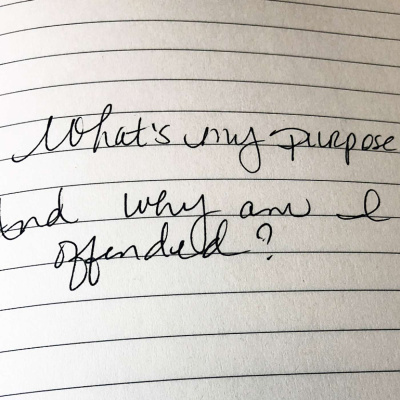 What's my purpose
And why am I
offended?